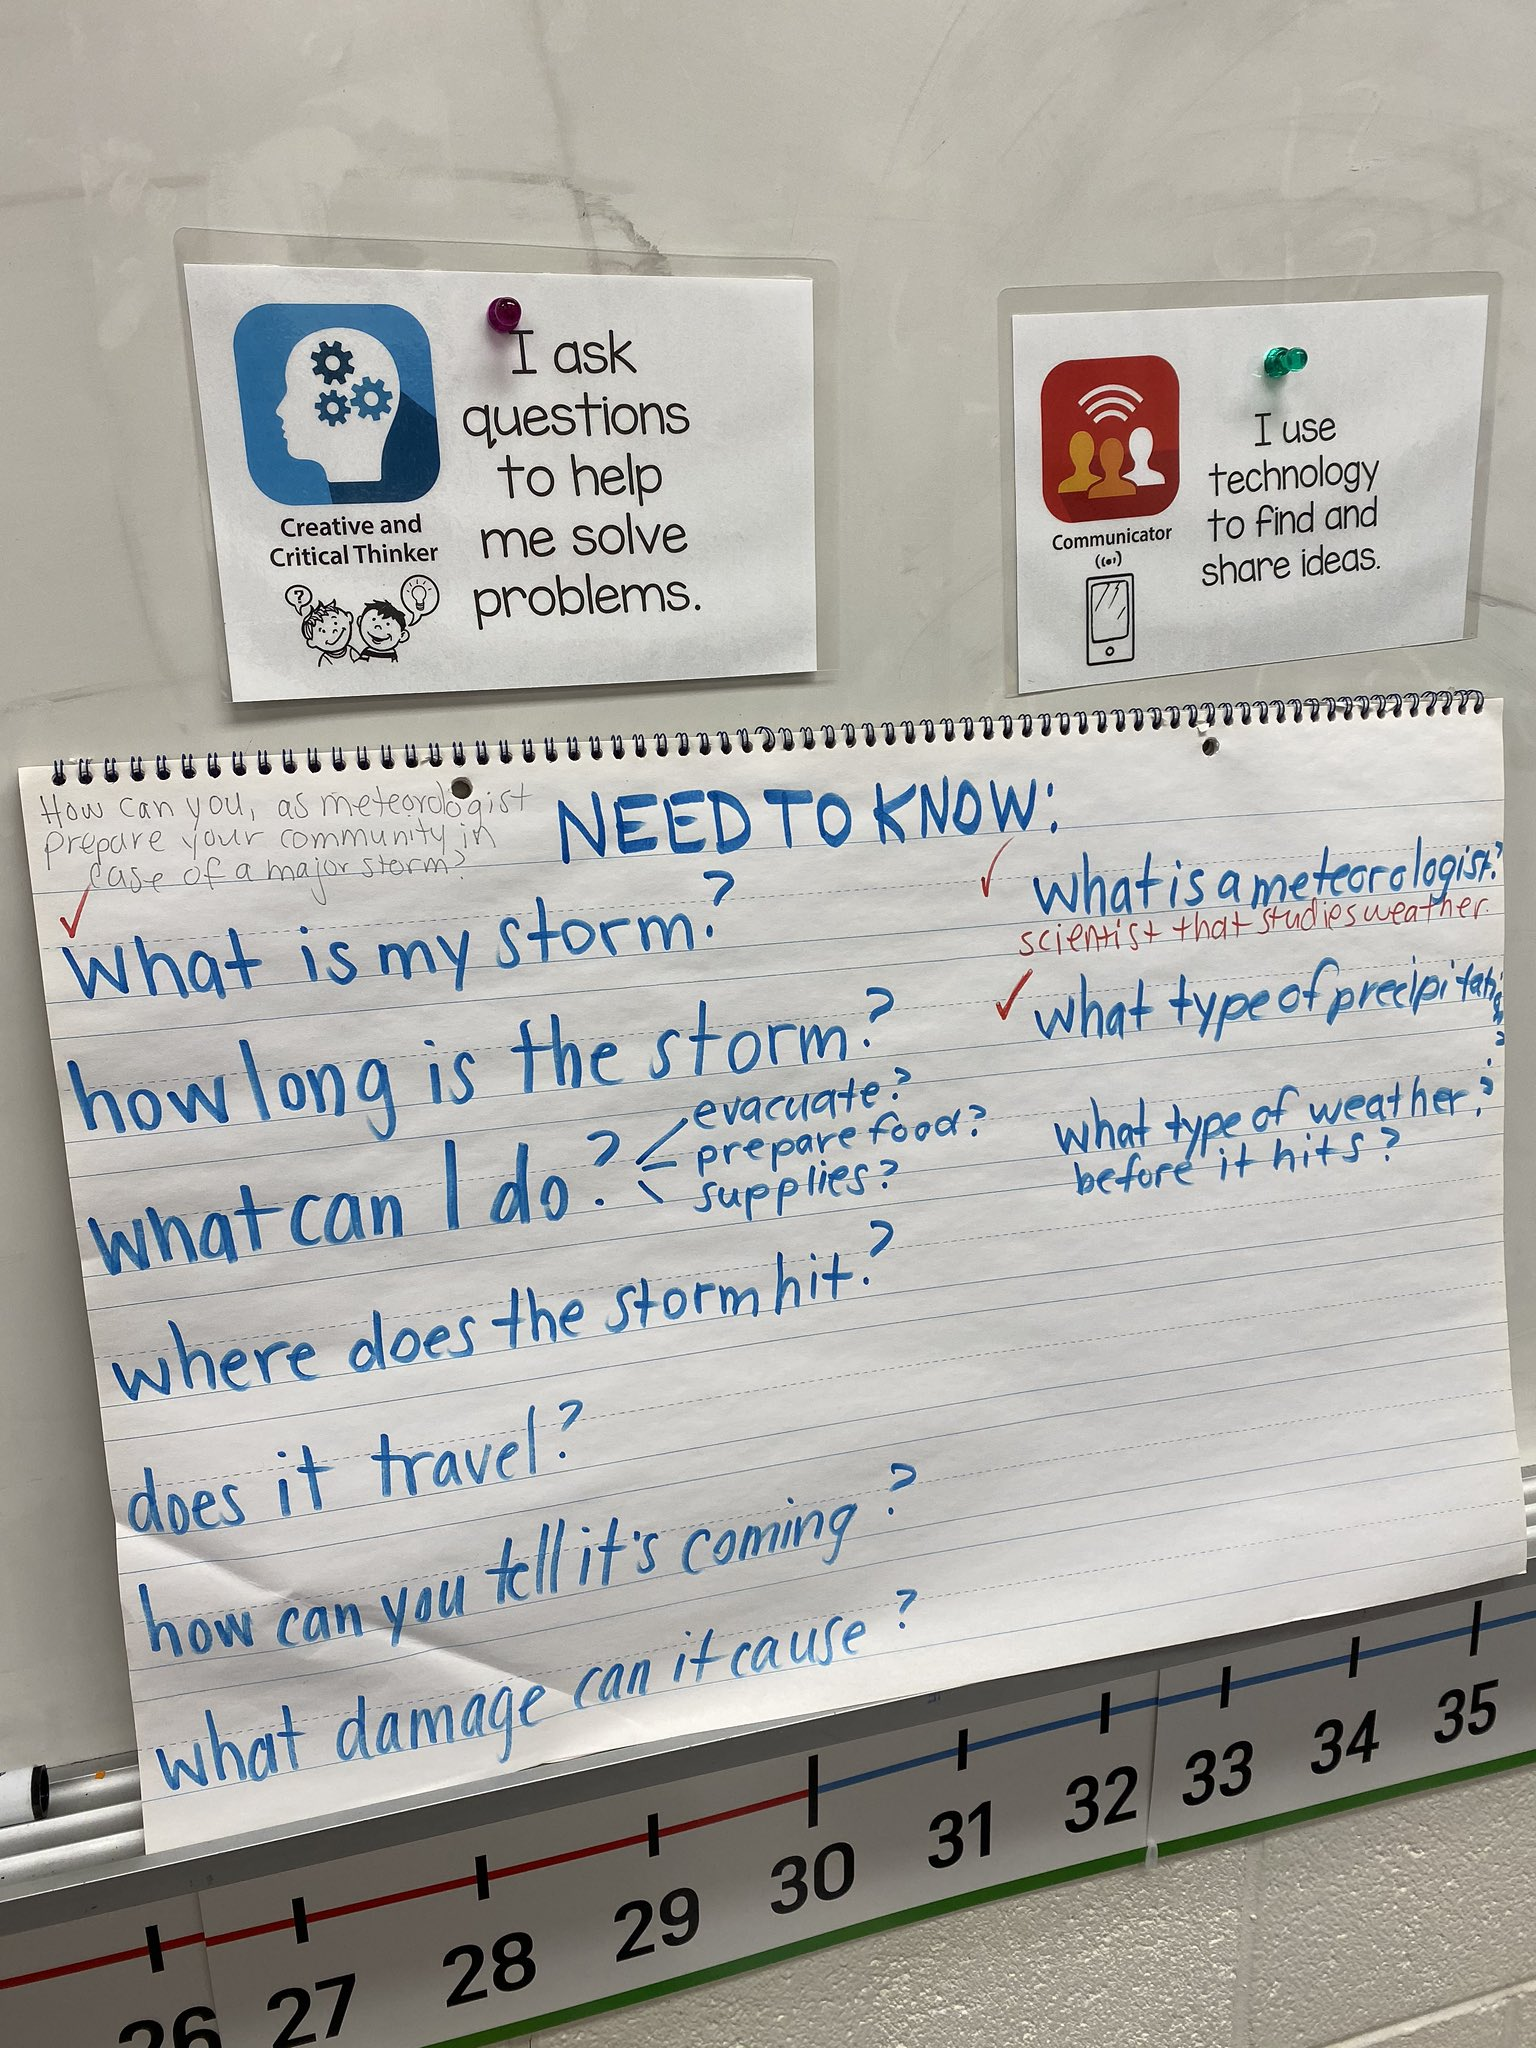 I ask
questions
to help
me solve
problems.
Creative and
Critical Thinker
?
I use
technology
to find and
share ideas.
Communicator
How can you, as meteorologist
prepare your community in
case of a major storm?
NEED TO KNOW:
what is my storm?
how long is the storm?
what can I do?
evacuate?
prepare food?
supplies?
where does the storm hit?
does it travel?
how can you tell it's coming?
what damage can it cause?
what is a meteorologist?
scientist that studies weather.
what type of precipitation?
what type of weather?
before it hits?
26 27 28 29 30 31 32 33 34 35